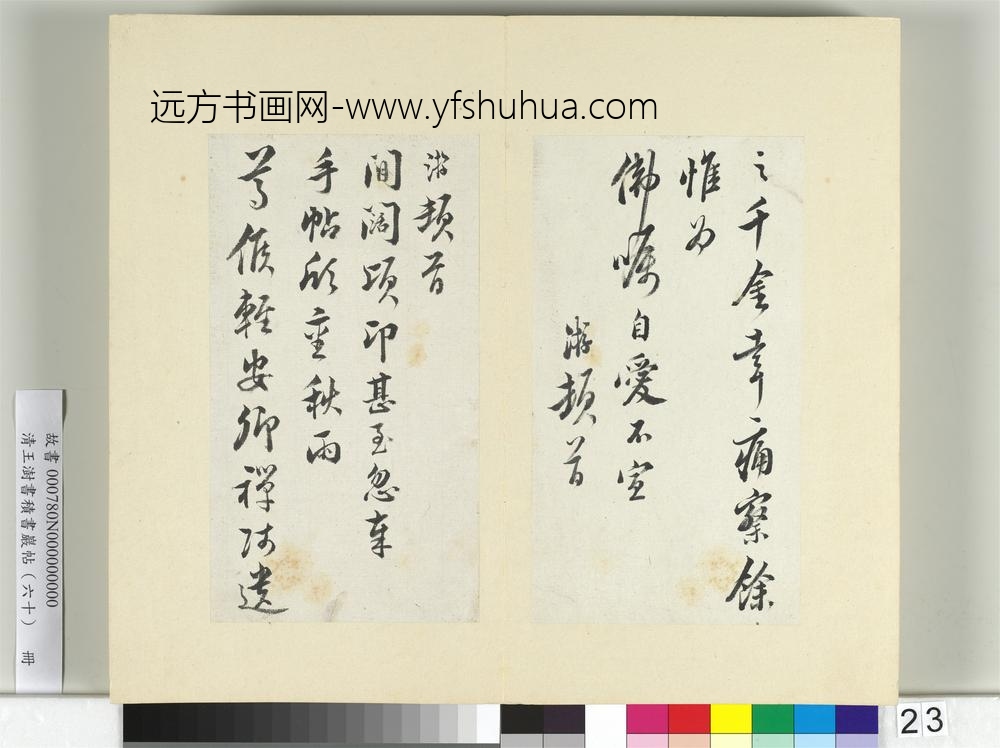 远方书画网-www.yfshuhua.com
之千金幸痛察餘
惟为
佛嘱自愛不宣
游頓首
游頓首
間闊頃卬甚至忽奉
手帖欣審秋雨
尊候輕安卿禪師遺
故書 000780N000000000
清王澍書積書巖帖（六十） 冊
23